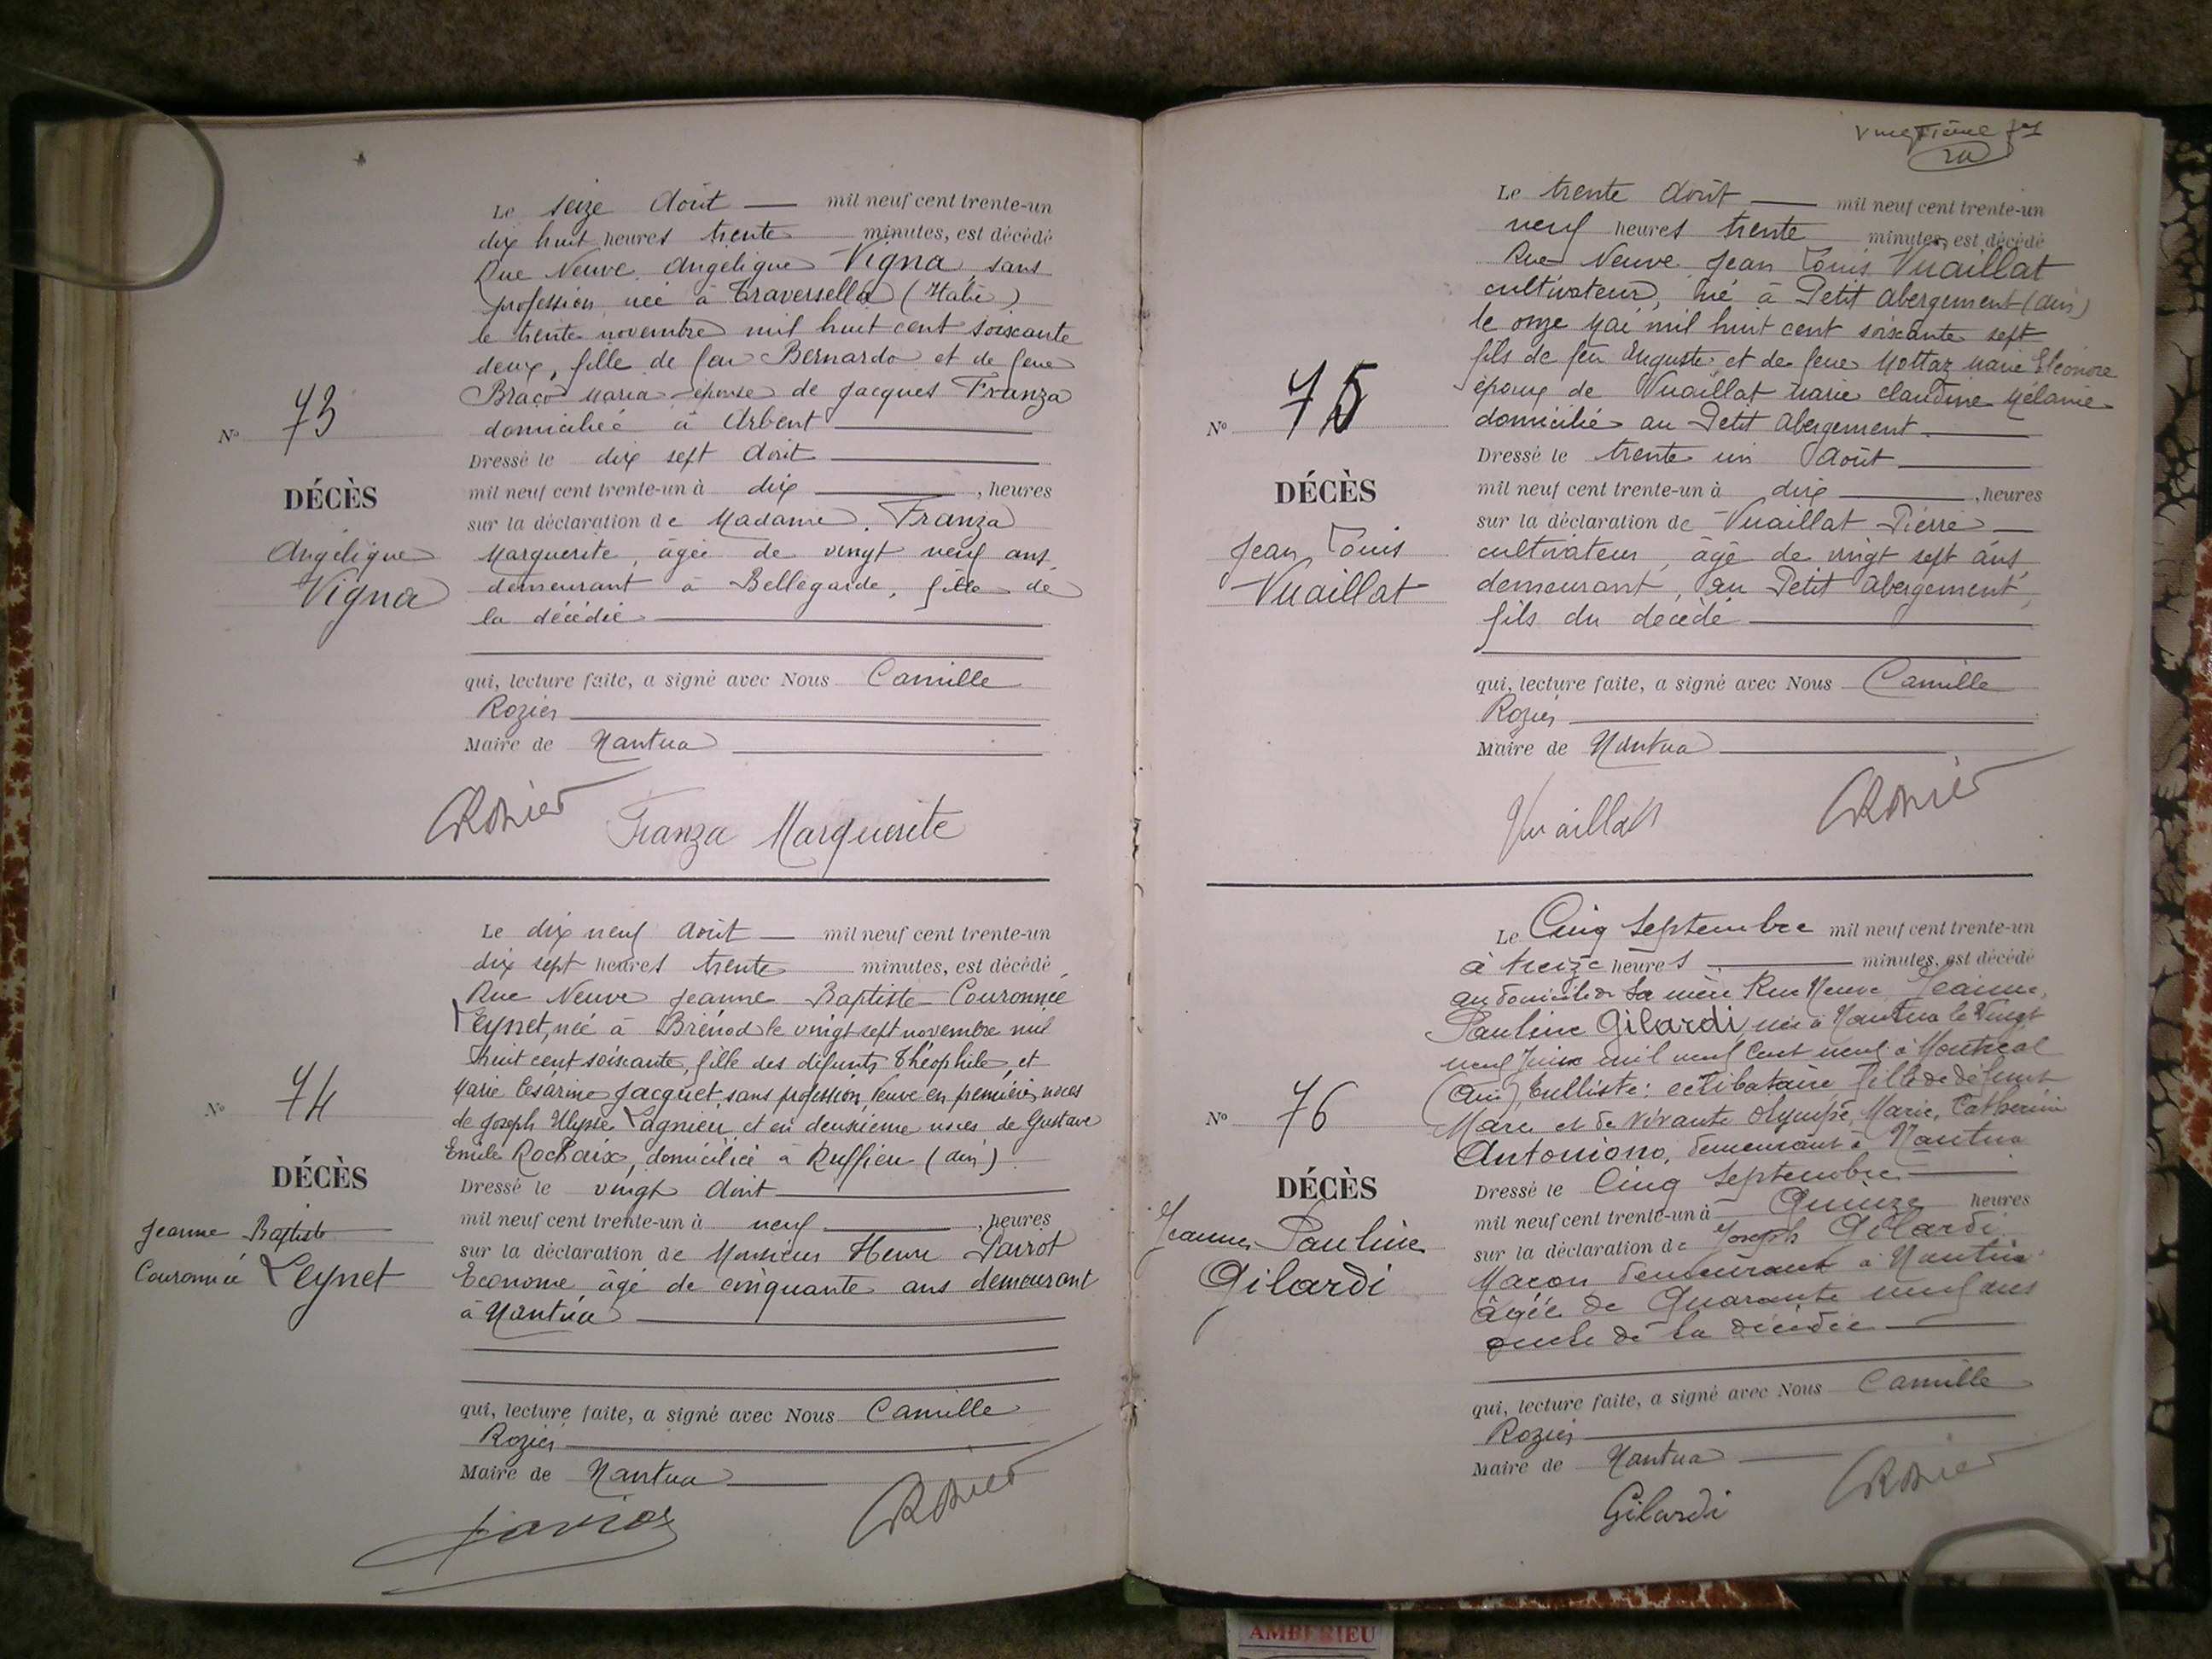 Le seize Août — mil neuf cent trente-un
dix huit heures trente minutes, est décédé
Rue Neuve Angélique Vigna sans
profession née à Traversella (Italie)
le trente novembre mil huit cent soixante
deux, fille de feu Bernardo et de feue
Braco Maria épouse de Jacques Franza
domiciliée à Arbent
Dressé le dix sept Août
mil neuf cent trente-un à dix , heures
sur la déclaration de Madame Franza
Marguerite, âgée de vingt neuf ans
demeurant à Bellegarde, fille de
la décédée
qui, lecture faite, a signé avec Nous Camille
Rozier
Maire de Nantua
N° 73
DÉCÈS
Angélique
Vigna
CRozier Franza Marguerite
Le dix neuf Août — mil neuf cent trente-un
dix sept heures trente minutes, est décédé
Rue Neuve Jeanne Baptiste Couronnée
Leynet, née à Brénod le vingt sept novembre mil
huit cent soixante, fille des défunts Théophile et
Marie Césarine Jacquet, sans profession, Veuve en première noces
de Joseph Ulysse Lagnieu et en deuxième noces de Gustave
Emile Rochaix, domiciliée à Ruffieu (Ain)
Dressé le vingt Août
mil neuf cent trente-un à neuf , heures
sur la déclaration de Monsieur Henri Parrot
Econome âgé de cinquante ans demeurant
à Nantua
qui, lecture faite, a signé avec Nous Camille
Rozier
Maire de Nantua
N° 74
DÉCÈS
Jeanne Baptiste
Couronnée Leynet
CRozier
Vingtième
20
Le trente Août — mil neuf cent trente-un
neuf heures trente minutes, est décédé
Rue Neuve Jean Louis Vuaillat
cultivateur, né à Petit Abergement (Ain)
le onze Mai mil huit cent soixante sept
fils de feu Auguste et de feue Mottaz Marie Eléonore
époux de Vuaillat Marie Claudine Mélanie
domicilié au Petit Abergement
Dressé le trente un Août
mil neuf cent trente-un à dix , heures
sur la déclaration de Vuaillat Pierre
cultivateur, âgé de vingt sept ans
demeurant, au Petit Abergement,
fils du décédé
qui, lecture faite, a signé avec Nous Camille
Rozier
Maire de Nantua
N° 75
DÉCÈS
Jean Louis
Vuaillat
Vuaillat CRozier
Le Cinq Septembre mil neuf cent trente-un
à treize heures — minutes, est décédé
au domicile de sa mère Rue Neuve, Jeanne,
Pauline Gilardi née à Nantua le Vingt
neuf Juin mil neuf Cent neuf à Montréal
(Ain), tulliste: célibataire fille de défunt
Marc et de vivante Olympe, Marie, Catherine
Antoniono, demeurant à Nantua
Dressé le Cinq Septembre
mil neuf cent trente-un à Quinze heures
sur la déclaration de Joseph Gilardi
Maçon demeurant à Nantua
âgée de Quarante neuf ans
oncle de la décédée
qui, lecture faite, a signé avec Nous Camille
Rozier
Maire de Nantua
N° 76
DÉCÈS
Jeanne Pauline
Gilardi
Gilardi CRozier
AMBERIEU